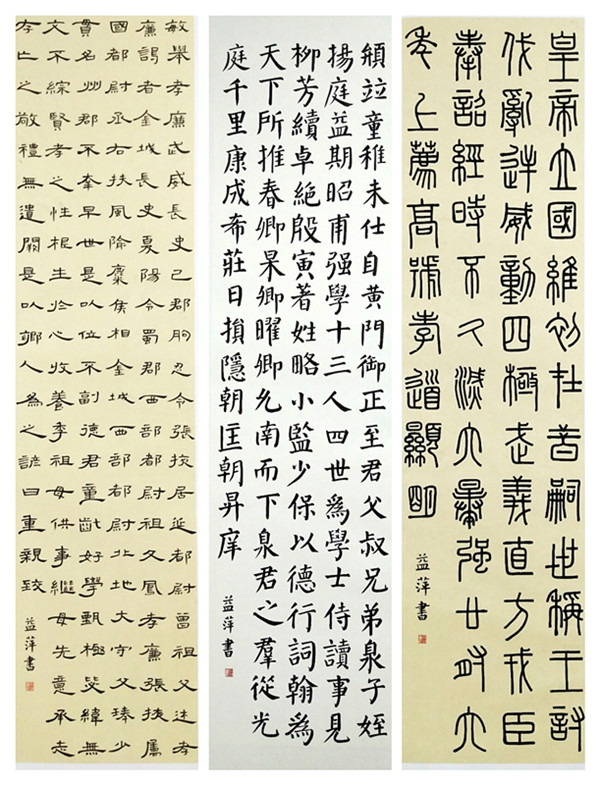 皇帝立國維初在昔嗣世稱王討
伐亂逆威動四極武義直方戎臣
奉詔經時不久滅六暴強廿有六
年上薦高號孝道顯明
益萍書
頵竝童稚未仕自黄門御正至君父叔兄弟泉子姪
揚庭益期昭甫强學十三人四世爲學士侍讀事見
柳芳續卓絶殷寅著姓略小監少保以德行詞翰爲
天下所推春卿杲卿曜卿允南而下泉君之羣從光
庭千里康成希莊日損隱朝匡朝昇庠
益萍書
敏舉孝廉武威長史巴郡朐忍令張掖居延都尉曾祖父述孝
廉謁者金城長史夏陽令蜀郡西部都尉祖父鳳孝廉張掖屬
國都尉丞右扶風隃麋侯相金城西部都尉北地大守父琫少
貫名州郡不幸早世是以位不副德君童齔好學甄極毖緯無
文不綜賢孝之性根生於心收養季祖母供事繼母先意承志
存亡之敬禮無遺闕是以鄉人爲之諺曰重親致
益萍書